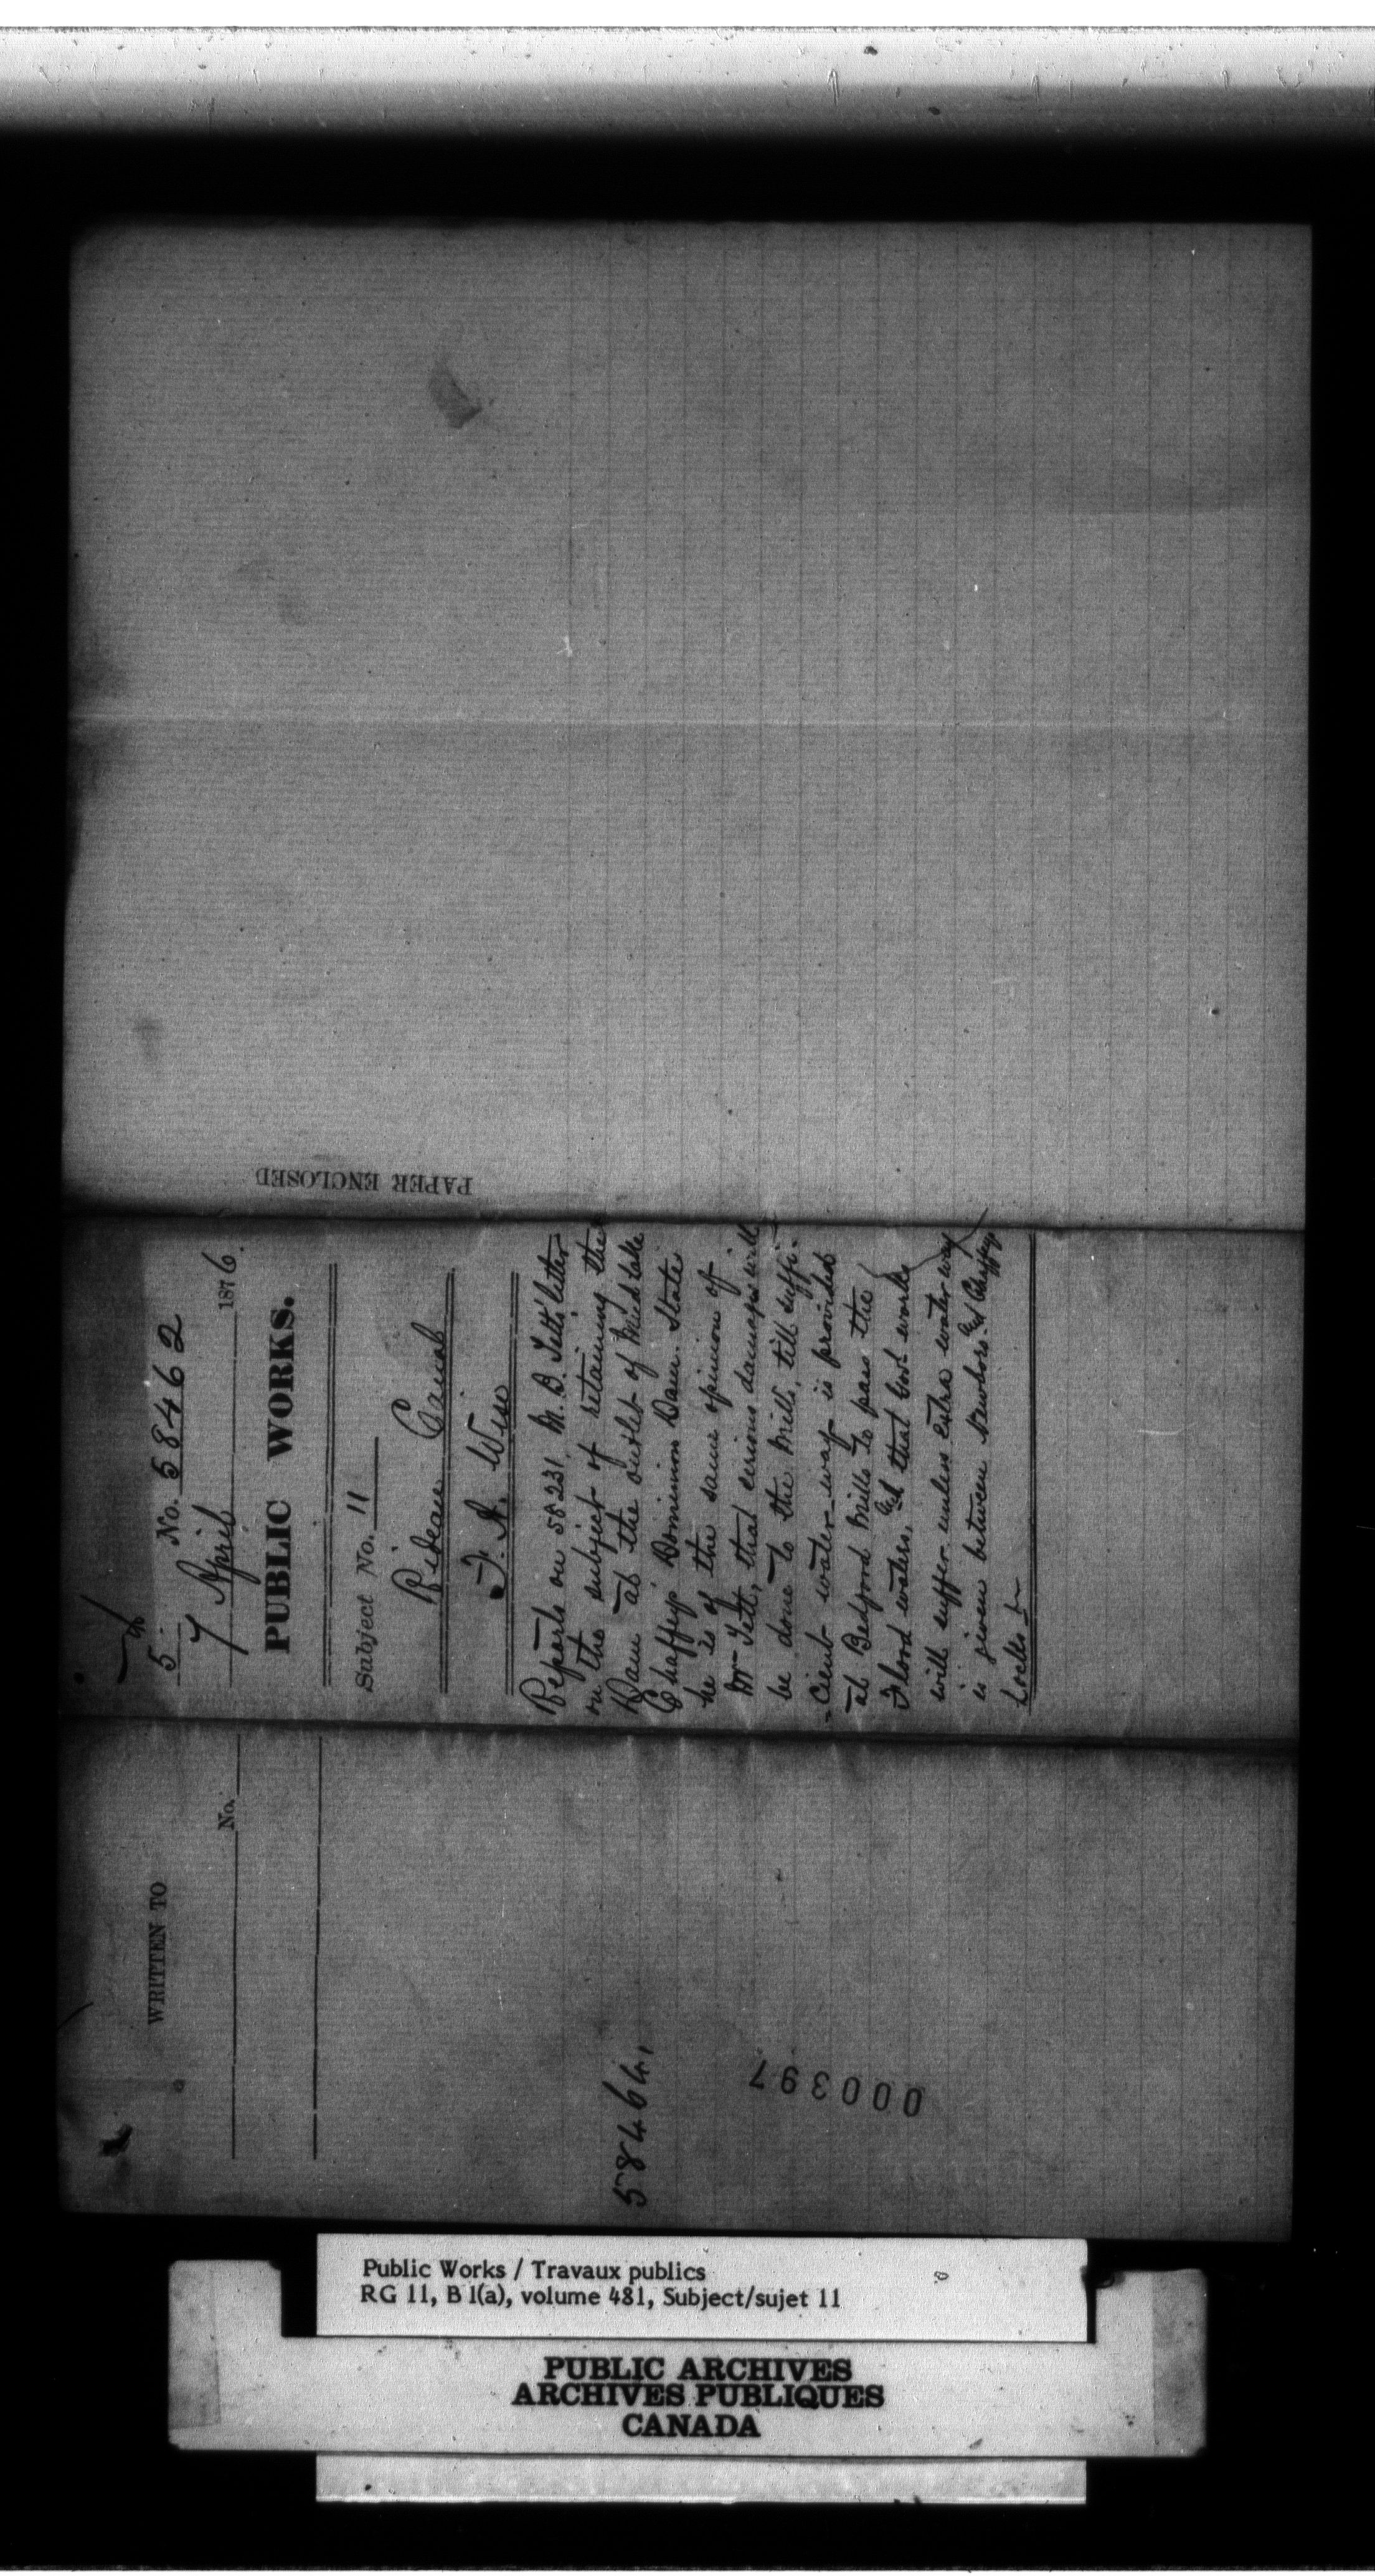 WRITTEN TO
No.
58464,
000397
5 No. 58462
7 April 1876.
PUBLIC WORKS.
Subject No. 11
Rideau Canal
F. A. Wise
Reports on 58231, M. B. Tett's letter
on the subject of retaining the
Dam at the outlet of Mud Lake
Chaffeys Dominion Dam. State
he is of the same opinion of
Mr Tett, that serious damages will
be done to the Mills, till suffi-
-cient water-way is provided
at Bedford Mills to pass the
Flood waters, And that Govt works
will suffer unless extra water way
is given between Newboro & Chaffeys
Locks
PAPER ENCLOSED
Public Works / Travaux publics
RG 11, B 1(a), volume 481, Subject/sujet 11
PUBLIC ARCHIVES
ARCHIVES PUBLIQUES
CANADA